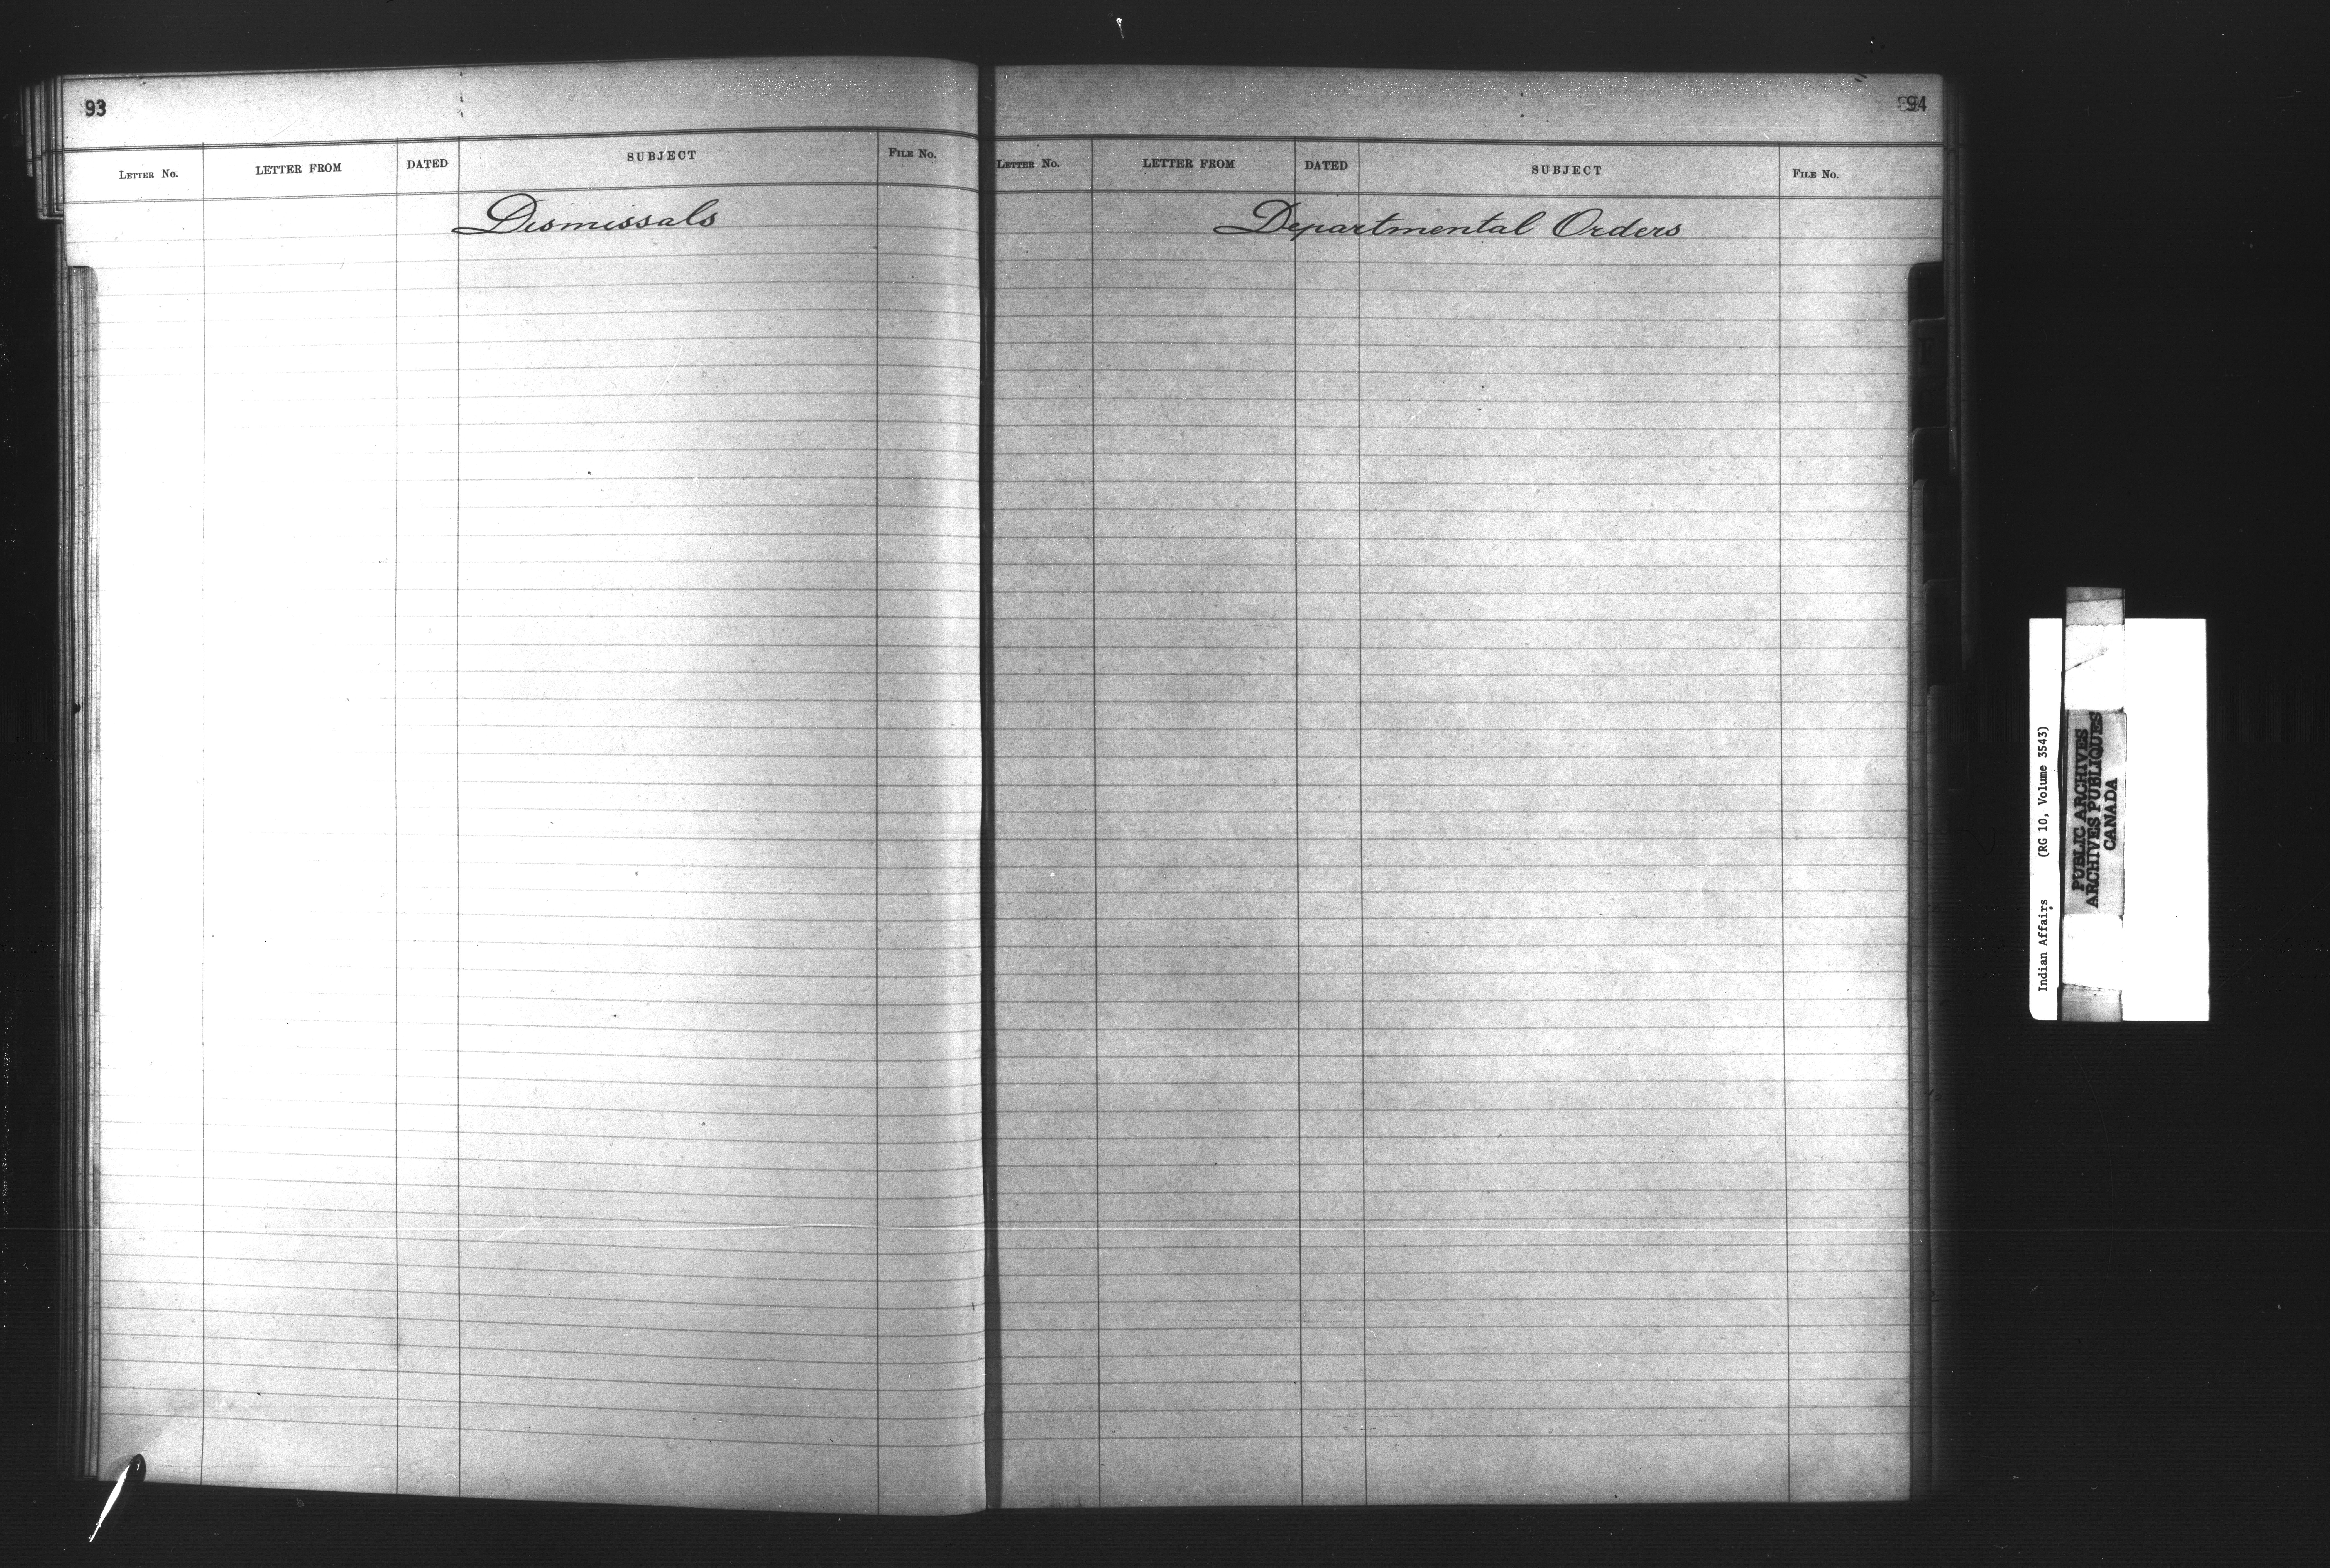 93
LETTER No. LETTER FROM DATED SUBJECT FILE No.
Dismissals
94
LETTER No. LETTER FROM DATED SUBJECT FILE No.
Departmental Orders
Indian Affairs (RG 10, Volume 3543)
PUBLIC ARCHIVES
ARCHIVES PUBLIQUES
CANADA